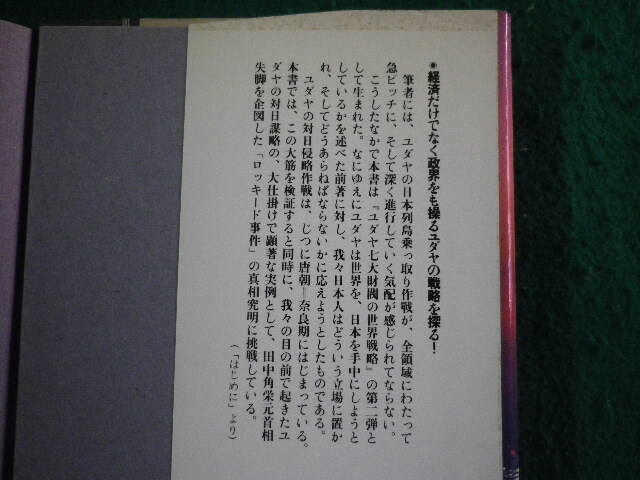 ●経済だけでなく政界をも操るユダヤの戦略を探る!
筆者には、ユダヤの日本列島乗っ取り作戦が、全領域にわたって
急ピッチに、そして深く進行していく気配が感じられてならない。
こうしたなかで本書は『ユダヤ七大財閥の世界戦略』の第二弾と
して生まれた。なにゆえにユダヤは世界を、日本を手中にしようと
しているかを述べた前著に対し、我々日本人はどういう立場に置か
れ、そしてどうあらねばならないかに応えようとしたものである。
ユダヤの対日侵略作戦は、じつに唐朝=奈良期にはじまっている。
本書では、この大筋を検証すると同時に、我々の目の前で起きたユ
ダヤの対日謀略の、大仕掛けで顕著な実例として、田中角栄元首相
失脚を企図した「ロッキード事件」の真相究明に挑戦している。
(「はじめに」より)